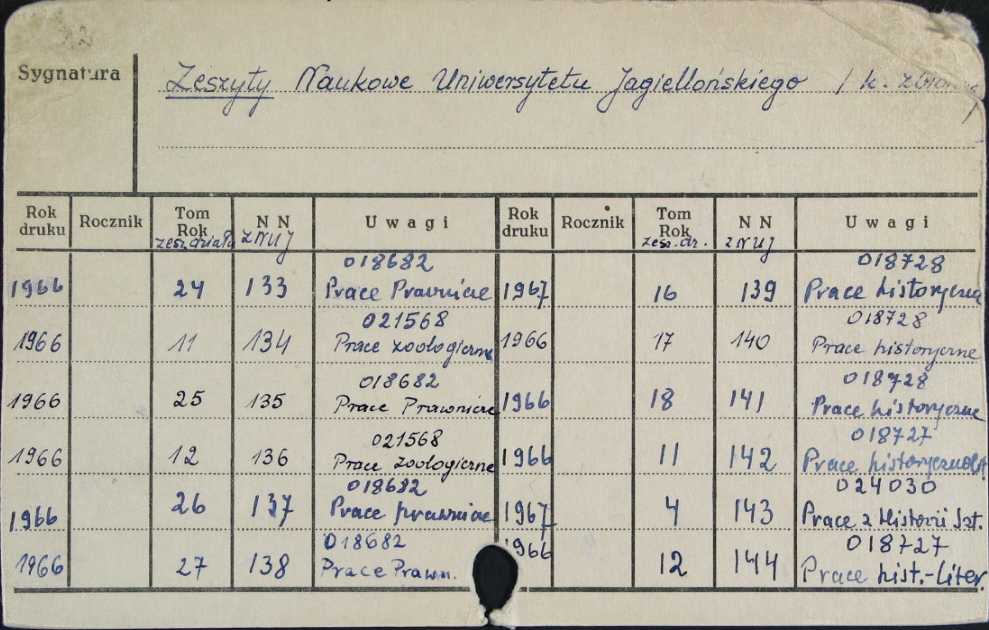 Sygnatura
Zeszyty Naukowe Uniwersytetu Jagiellońskiego / k. zbiorcza/
Rok druku Rocznik Tom Rok zesz.działu N N ZNUJ Uwagi Rok druku Rocznik Tom Rok zesz. dz. N N ZNUJ Uwagi
018682 018728
1966 24 133 Prace Prawnicze 1967 16 139 Prace historyczne
021568 018728
1966 11 134 Prace zoologiczne 1966 17 140 Prace historyczne
018682 018728
1966 25 135 Prace Prawnicze 1966 18 141 Prace historyczne
021568 018727
1966 12 136 Prace zoologiczne 1966 11 142 Prace
018682 024030
1966 26 137 Prace prawnicze 1967 4 143 Prace z Historii Szt.
018682 018727
1966 27 138 Prace Prawn. 1966 12 144 Prace hist.-Liter.